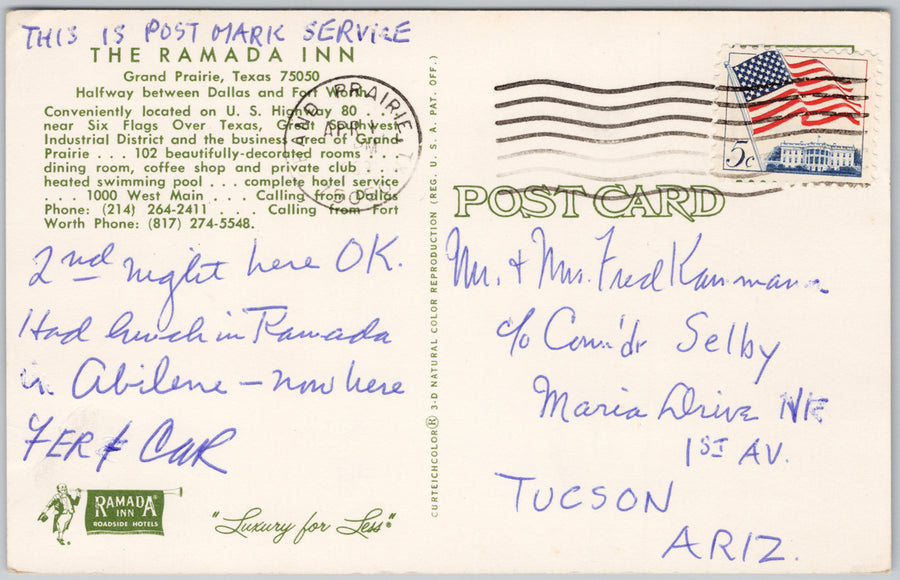 THIS IS POST MARK SERVICE
THE RAMADA INN
Grand Prairie, Texas 75050
Halfway between Dallas and Fort Worth
Conveniently located on U. S. Highway 80 . . .
near Six Flags Over Texas, Great Southwest
Industrial District and the business area of Grand
Prairie . . . 102 beautifully-decorated rooms . . .
dining room, coffee shop and private club . . .
heated swimming pool . . . complete hotel service
. . . 1000 West Main . . . Calling from Dallas
Phone: (214) 264-2411 . . . Calling from Fort
Worth Phone: (817) 274-5548.
2nd night here OK.
Had lunch in Ramada
in Abilene – now here
FER & CWR
RAMADA®
INN
ROADSIDE HOTELS
"Luxury for Less"®
CURTEICHCOLOR® 3-D NATURAL COLOR REPRODUCTION (REG. U. S. A. PAT. OFF.)
GRAND PRAIRIE
5c
POST CARD
Mr. & Mrs. Fred
c/o Com'dr Selby
Maria Drive NE
1ST AV.
TUCSON
ARIZ.